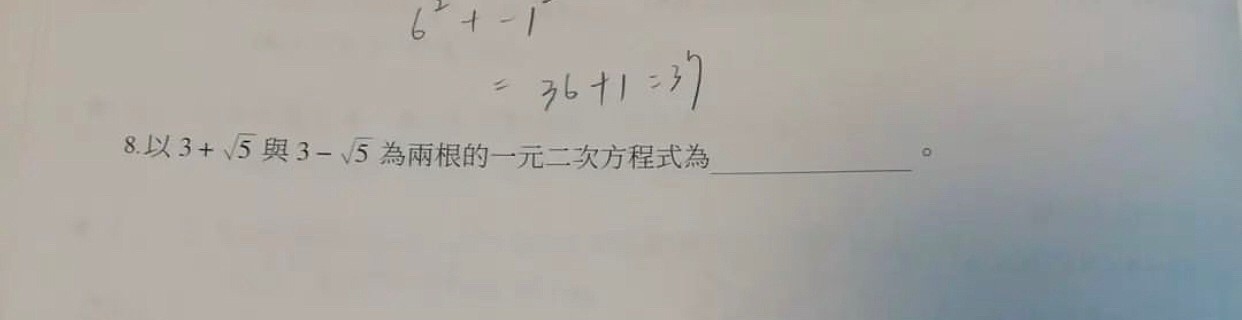 6² + -1
= 36+1=37
8.以 3 + √5 與 3 − √5 為兩根的一元二次方程式為____________。